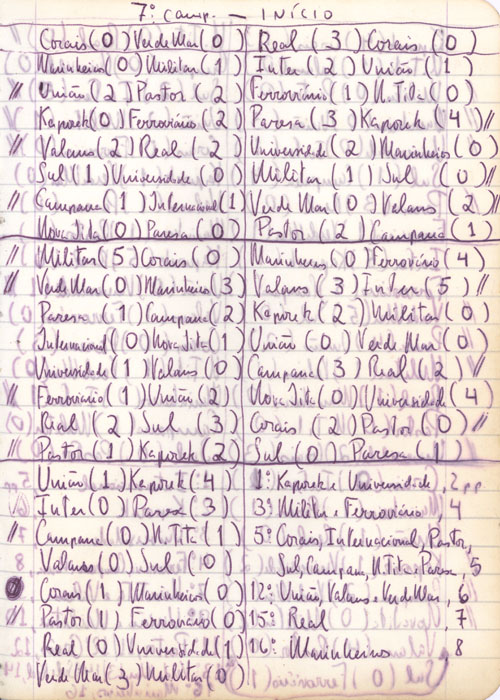 7º Camp. — INÍCIO
Corais (0) Verde Mar (0) Real (3) Corais (0)
Marinheiros (0) Militar (1) Inter (2) União (1)
// União (2) Pastor (2) Ferroviário (1) N. Tita (0)
Kaporek (0) Ferroviário (2) Paresa (3) Kaporek (4) //
// Valans (2) Real (2) Universidade (2) Marinheiros (0)
Sul (1) Universidade (0) Militar (1) Sul (0) //
// Campana (1) Internacional (1) Verde Mar (0) Valans (2) //
Nova Tita (0) Paresa (0) Pastor (2) Campana (1)
// Militar (5) Corais (0) Marinheiros (0) Ferroviário (4)
// Verde Mar (0) Marinheiros (3) Valans (3) Inter (5) //
Paresa (1) Campana (2) Kaporek (2) Militar (0)
Internacional (0) Nova Tita (1) União (0) Verde Mar (0)
Universidade (1) Valans (0) Campana (3) Real (2) //
// Ferroviário (1) União (2) Nova Tita (0) Universidade (4)
Real (2) Sul (3) Corais (2) Pastor (0) //
// Pastor (1) Kaporek (2) Sul (0) Paresa (1)
União (1) Kaporek (4) 1º: Kaporek e Universidade, 2 pp
Inter (0) Paresa (3) 3º: Militar e Ferroviário 4
// Campana (0) N. Tita (1) 5º: Corais, Internacional, Pastor,
Valans (0) Sul (0) Sul, Campana, N. Tita e Paresa, 5
Corais (1) Marinheiros (0) 12º: União, Valans e Verde Mar, 6
// Pastor (1) Ferroviário (0) 15º: Real 7
Real (0) Universidade (1) 16º: Marinheiros, 8
Verde Mar (3) Militar (0)